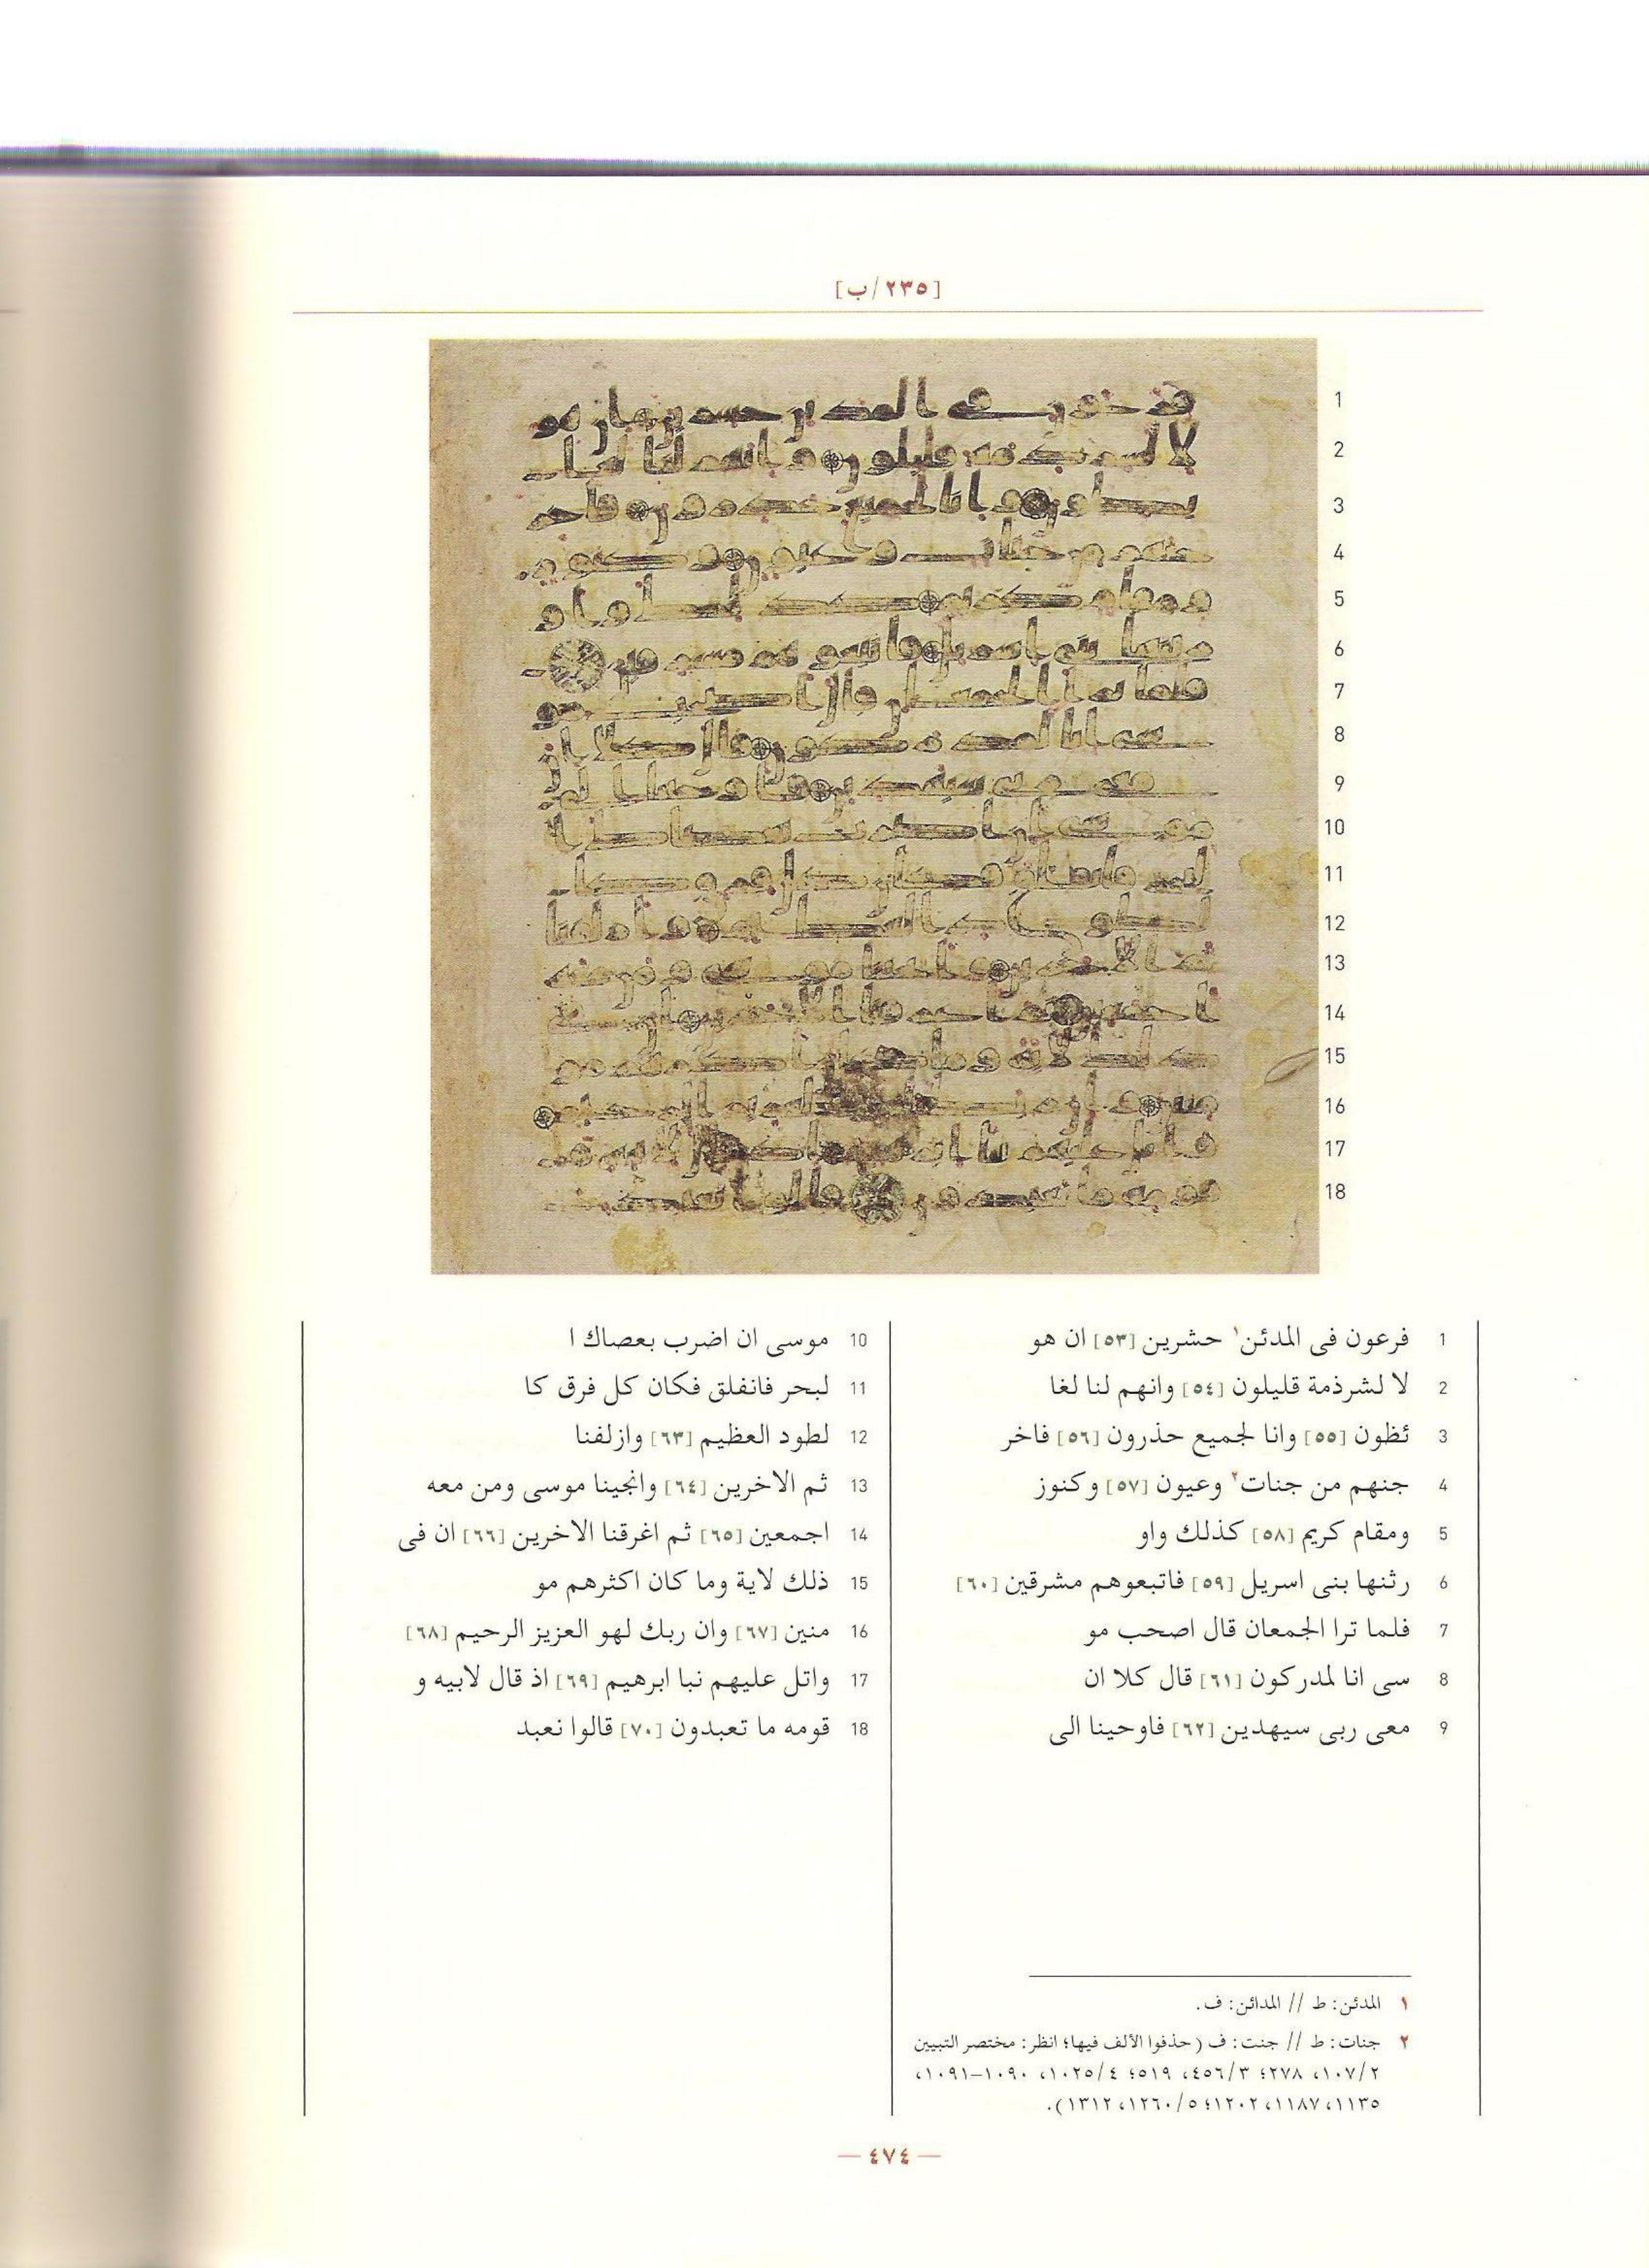 [٢٣٥/ب]
1 فرعون فى المدئن١ حشرين [٥٣] ان هو
2 لا لشرذمة قليلون [٥٤] وانهم لنا لغا
3 ئظون [٥٥] وانا لجميع حذرون [٥٦] فاخر
4 جنهم من جنات٢ وعيون [٥٧] وكنوز
5 ومقام كريم [٥٨] كذلك واو
6 رثنها بنى اسريل [٥٩] فاتبعوهم مشرقين [٦٠]
7 فلما ترا الجمعان قال اصحب مو
8 سى انا لمدركون [٦١] قال كلا ان
9 معى ربى سيهدين [٦٢] فاوحينا الى
10 موسى ان اضرب بعصاك ا
11 لبحر فانفلق فكان كل فرق كا
12 لطود العظيم [٦٣] وازلفنا
13 ثم الاخرين [٦٤] وانجينا موسى ومن معه
14 اجمعين [٦٥] ثم اغرقنا الاخرين [٦٦] ان فى
15 ذلك لاية وما كان اكثرهم مو
16 منين [٦٧] وان ربك لهو العزيز الرحيم [٦٨]
17 واتل عليهم نبا ابرهيم [٦٩] اذ قال لابيه و
18 قومه ما تعبدون [٧٠] قالوا نعبد
١ المدئن: ط // المدائن: ف.
٢ جنات: ط // جنت: ف (حذفوا الألف فيها؛ انظر: مختصر التبيين
١٠٧/٢، ٢٧٨؛ ٤٥٦/٣، ٥١٩؛ ١٠٢٥/٤، ١٠٩٠–١٠٩١،
١١٣٥، ١١٨٧، ١٢٠٢؛ ١٢٦٠/٥، ١٣١٢).
— ٤٧٤ —